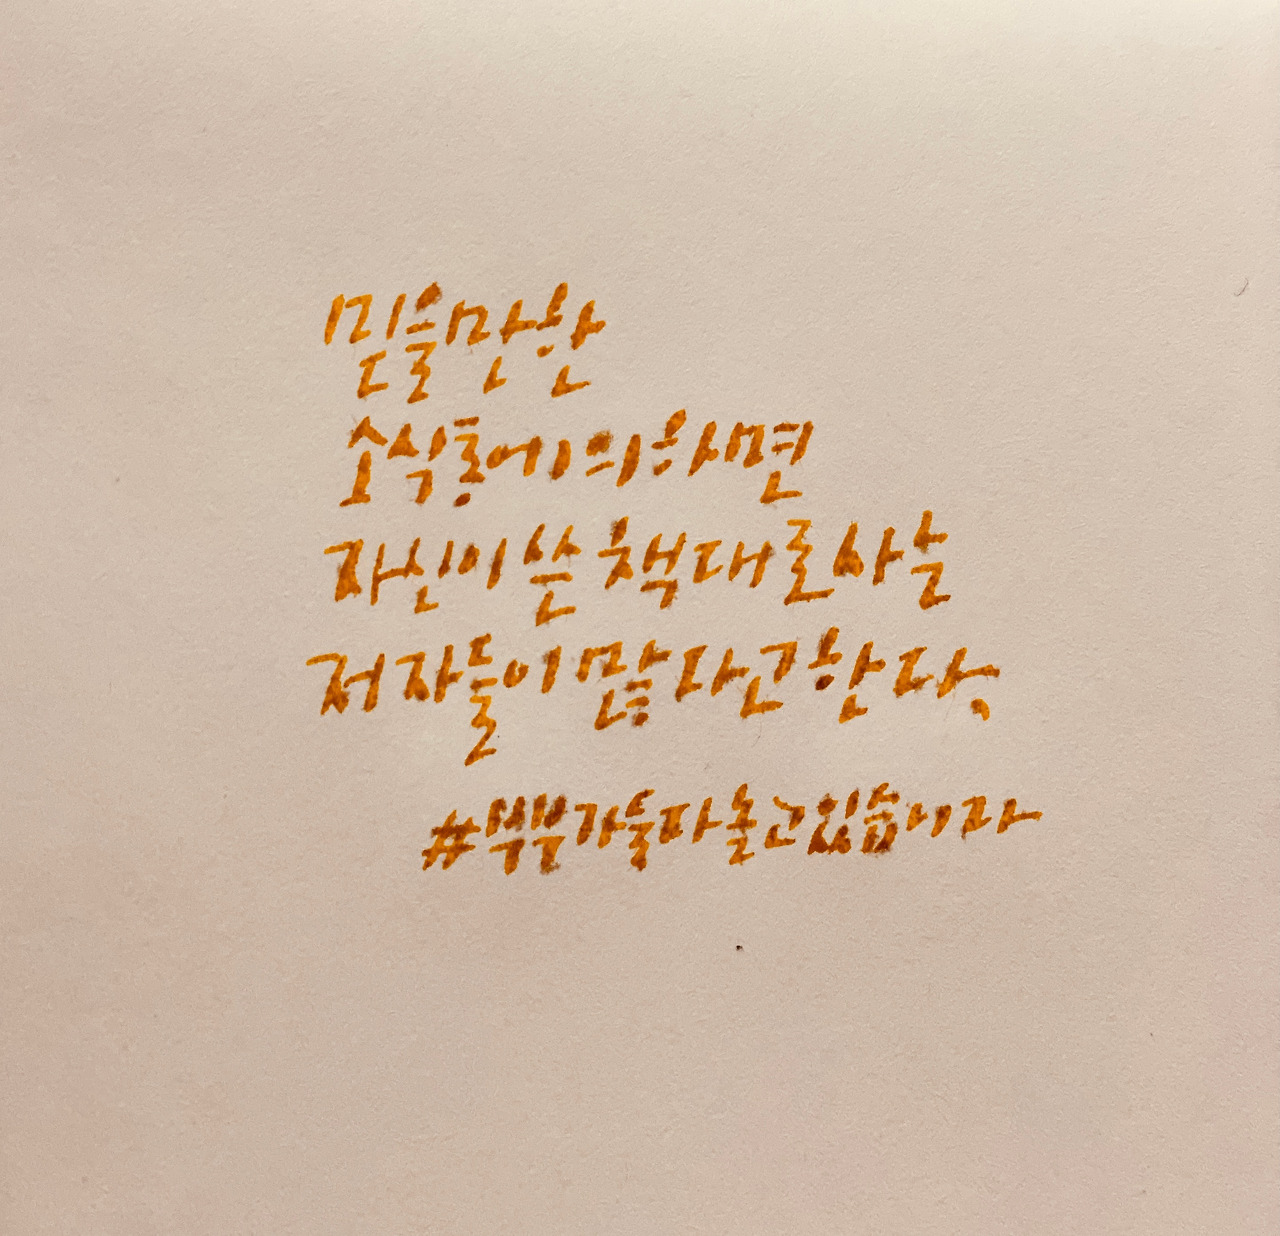 믿을만한
소식통에 의하면
자신이 쓴 책대로 사는
저자들이 많다고 한다.
#부부가둘다놀고있습니다